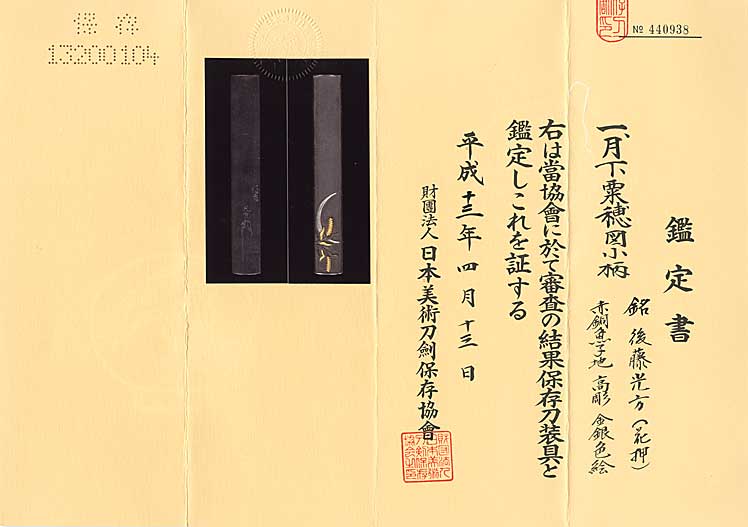 № 440938
鑑定書
一、月下粟穂図小柄
銘 後藤光方(花押)
赤銅魚子地 高彫 金銀色絵
右は當協會に於て審査の結果保存刀装具と
鑑定しこれを証する
平成十三年四月十三日
財團法人 日本美術刀劍保存協會
保存
13200104